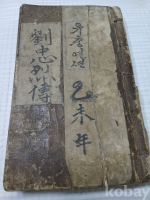 劉忠烈傳
유충열전
乙未年
kobay